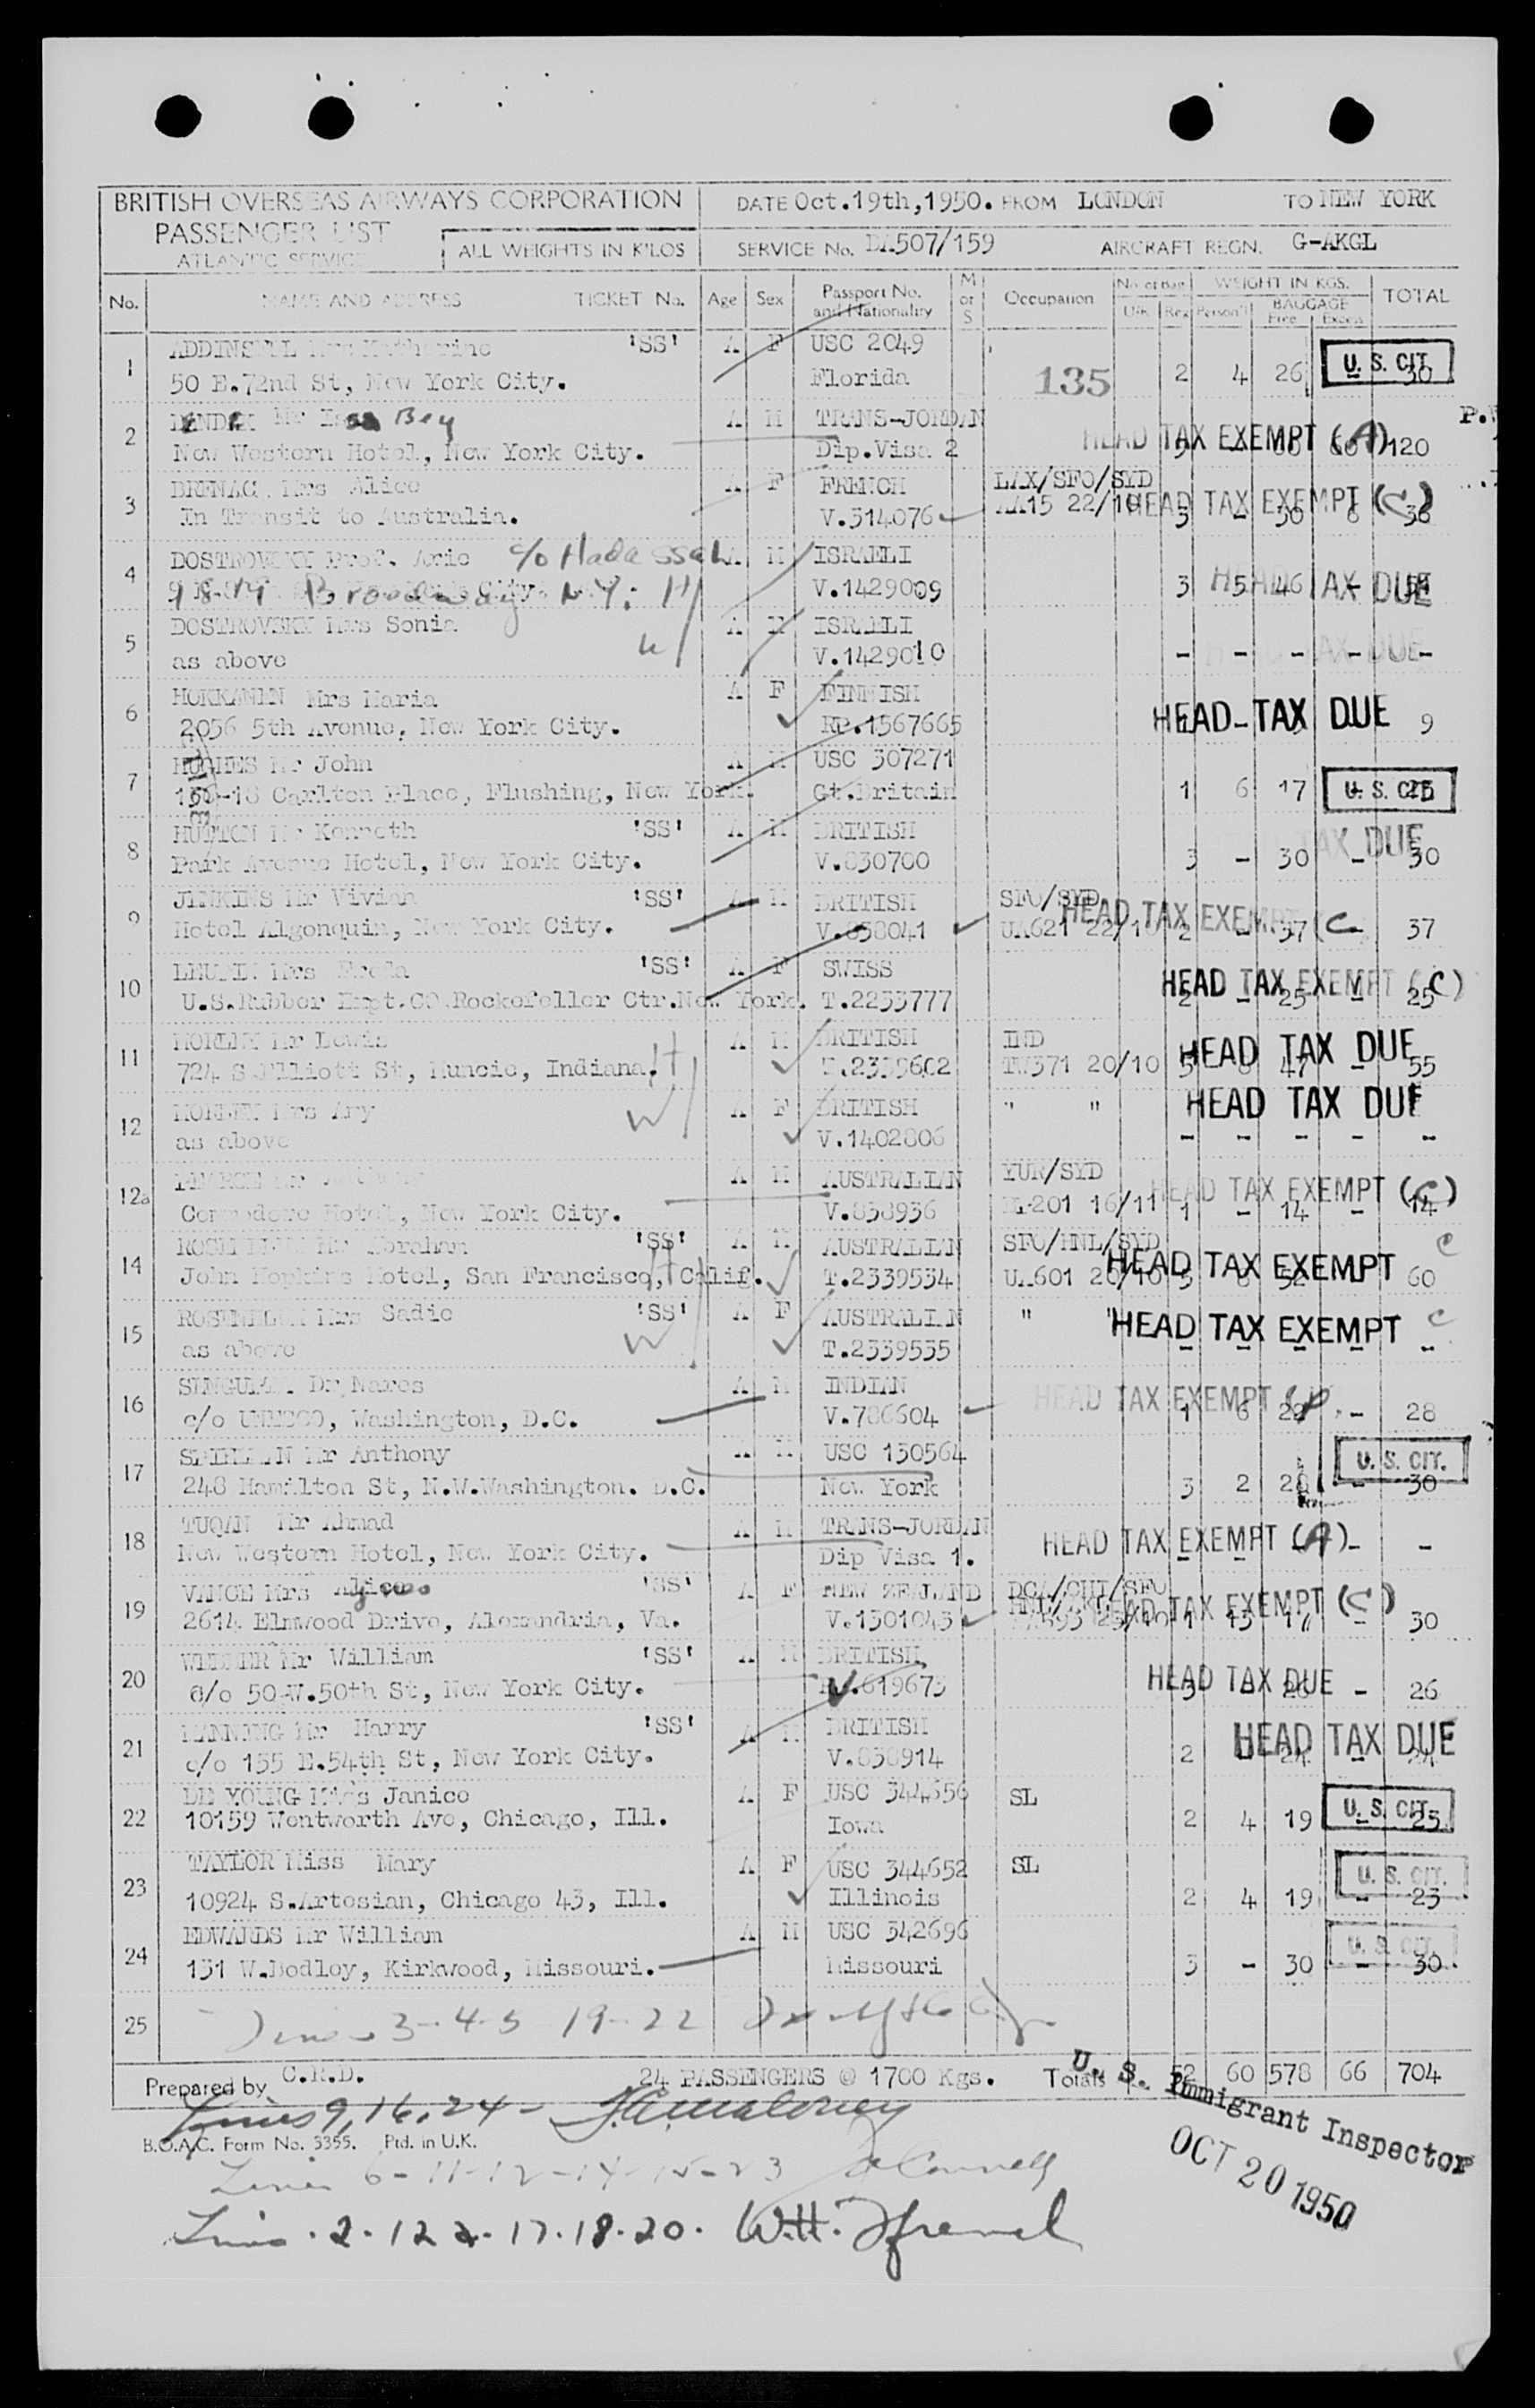 BRITISH OVERSEAS AIRWAYS CORPORATION
PASSENGER LIST
ATLANTIC SERVICE
ALL WEIGHTS IN KILOS
DATE Oct.19th,1950. FROM LONDON TO NEW YORK
SERVICE No. DA507/159 AIRCRAFT REGN. G-AKGL
No. NAME AND ADDRESS TICKET No. Age Sex Passport No. and Nationality M or S Occupation No. of Bag. U/K Reg WEIGHT IN KGS. Person'l BAGGAGE Free Excess TOTAL
1 ADDINSELL Mrs Katherine 'SS' A F USC 2049
50 E.72nd St, New York City. Florida 135 2 4 26 - 30 U. S. CIT.
2 Mr Bey A M TRANS-JORDAN
New Western Hotel, New York City. Dip.Visa 2 HEAD TAX EXEMPT (A) 120
3 Mrs Alice A F FRENCH LAX/SFO/SYD
In Transit to Australia. V.314076 AA15 22/10 HEAD TAX EXEMPT (C) 3 - 30 6 36
4 DOSTROVSKY Prof. Arie c/o Hadassah A M ISRAELI
Broadway N.Y. H/ V.1429009 3 5 46 - HEAD TAX DUE
5 DOSTROVSKY Mrs Sonia A F ISRAELI
as above W/ V.1429010 - - - - - HEAD TAX DUE
6 HOKKANEN Mrs Maria A F FINNISH
2056 5th Avenue, New York City. RP.1567665 HEAD TAX DUE 9
7 HUGHES Mr John A M USC 307271
Carlton Place, Flushing, New York. Gt.Britain 1 6 17 - U. S. CIT.
8 HUTTON Mr Kenneth 'SS' A M BRITISH
Park Avenue Hotel, New York City. V.830700 3 - 30 - 30 TAX DUE
9 JENKINS Mr Vivian 'SS' A M BRITISH SFO/SYD
Hotel Algonquin, New York City. V.838041 UA621 22/10 2 - 37 - 37 HEAD TAX EXEMPT (C
10 Mrs Freda 'SS' A F SWISS
U.S.Rubber Expt.CO.Rockefeller Ctr.New York. T.2253777 2 - 25 - 25 HEAD TAX EXEMPT (C)
11 Mr Lewis A M BRITISH IND
724 S.Elliott St, Muncie, Indiana. H/ TW371 20/10 HEAD TAX DUE 47 - 55
12 Mrs Amy A F BRITISH " "
as above W/ V.1402806 - - - - - HEAD TAX DUE
12a PEARCE Mr A M AUSTRALIAN YUR/SYD
Commodore Hotel, New York City. V.838936 201 16/11 1 - 14 - 14 HEAD TAX EXEMPT (C)
14 Mr Abraham 'SS' A M AUSTRALIAN SFO/HNL/SYD
John Hopkins Hotel, San Francisco, Calif. H/ T.2339534 UA601 HEAD TAX EXEMPT C 60
15 Mrs Sadie 'SS' A F AUSTRALIAN " "
as above W/ T.2339535 - - - - - HEAD TAX EXEMPT C
16 Dr Nares A M INDIAN
c/o UNESCO, Washington, D.C. V.786604 1 6 22 - 28 HEAD TAX EXEMPT
17 Mr Anthony A M USC 130564
248 Hamilton St, N.W.Washington. D.C. New York 3 2 28 - 30 U. S. CIT.
18 TUQAN Mr Ahmad A M TRANS-JORDAN
New Western Hotel, New York City. Dip Visa 1. HEAD TAX EXEMPT (A) - -
19 VANCE Mrs 'SS' A F NEW ZEALAND DCA/CHI/SFO
2614 Elmwood Drive, Alexandria, Va. V.1301043 1 13 17 - 30 HEAD TAX EXEMPT (C)
20 Mr William 'SS' A M BRITISH
c/o 50.W.50th St, New York City. 619673 HEAD TAX DUE 3 - 26 - 26
21 MANNING Mr Harry 'SS' A M BRITISH
c/o 155 E.54th St, New York City. V.838914 2 HEAD TAX DUE
22 DE YOUNG Miss Janice A F USC 344656 SL
10159 Wentworth Ave, Chicago, Ill. Iowa 2 4 19 - 23 U. S. CIT.
23 TAYLOR Miss Mary A F USC 344652 SL
10924 S.Artesian, Chicago 43, Ill. Illinois 2 4 19 - 23 U. S. CIT.
24 EDWARDS Mr William A M USC 342696
131 W.Bodley, Kirkwood, Missouri. Missouri 3 - 30 - 30 U. S. CIT.
25 Lines 3-4-5 19-22
Prepared by C.R.D. 24 PASSENGERS @ 1700 Kgs. Totals 52 60 578 66 704
Lines 9, 16, 24 -
B.O.A.C. Form No. 3355. Ptd. in U.K.
U. S. Immigrant Inspector
OCT 20 1950
Lines 6-11-12-14-15-23
Lines. 2. 12a. 17. 18. 20. W.H.